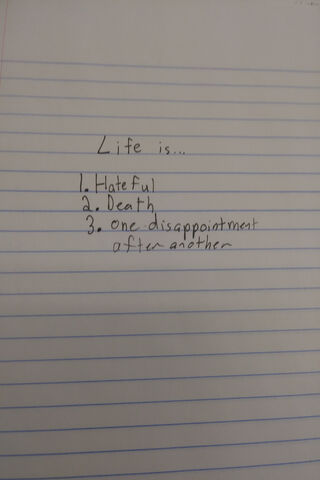 Life is...
1. Hateful
2. Death
3. one disappointment
after another